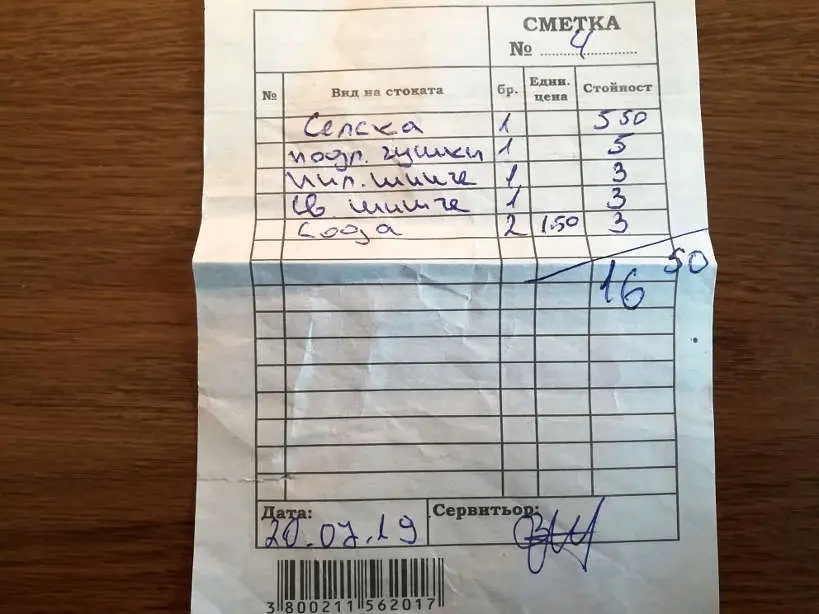 СМЕТКА
№ 4
№ Вид на стоката бр. Един. цена Стойност
Селска 1 5 50
подл. гушки 1 5
пил. шишче 1 3
св. шишче 1 3
сода 2 1.50 3
16 50
Дата: Сервитьор:
20.07.19
3 800211 562017